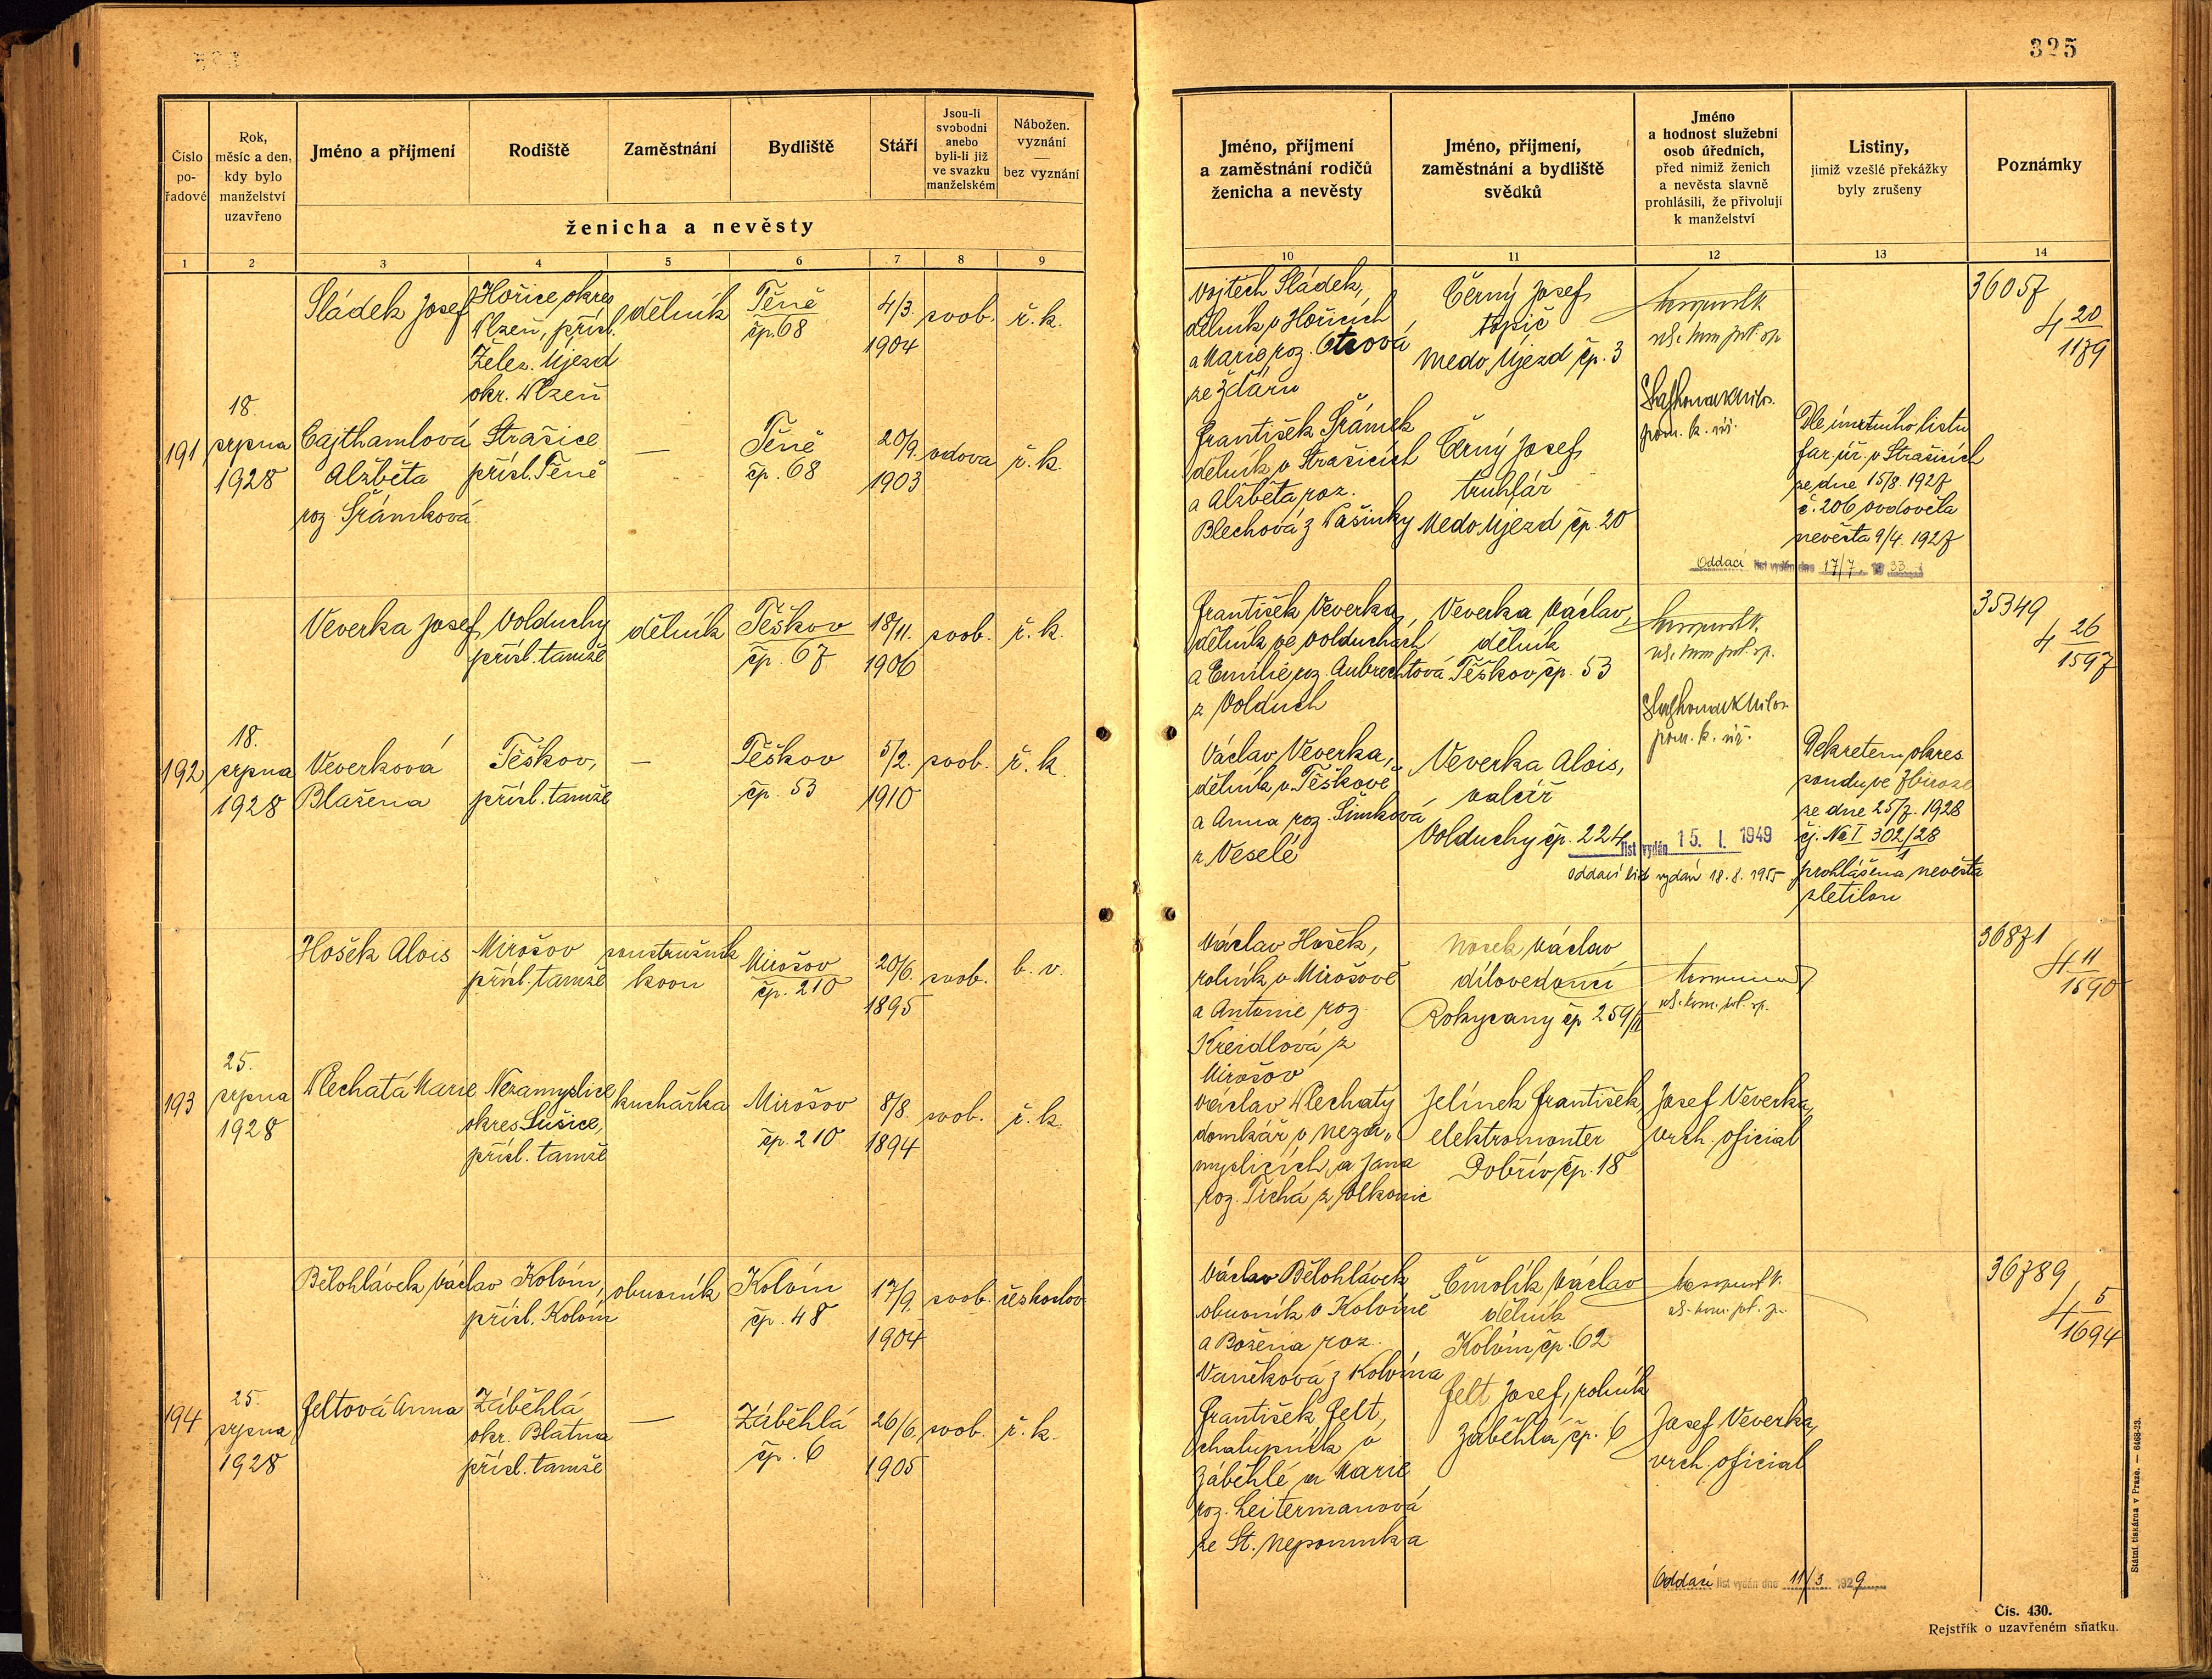 325
Číslo
po-
řadové
Rok,
měsíc a den,
kdy bylo
manželství
uzavřeno
Jméno a příjmení
Rodiště
Zaměstnání
Bydliště
Stáří
Jsou-li
svobodni
anebo
byli-li již
ve svazku
manželském
Nábožen.
vyznání
bez vyznání
ženicha a nevěsty
1 2 3 4 5 6 7 8 9
Jméno, příjmení
a zaměstnání rodičů
ženicha a nevěsty
Jméno, příjmení,
zaměstnání a bydliště
svědků
Jméno
a hodnost služební
osob úředních,
před nimiž ženich
a nevěsta slavně
prohlásili, že přivolují
k manželství
Listiny,
jimiž vzešlé překážky
byly zrušeny
Poznámky
10 11 12 13 14
191
18.
srpna
1928
Sládek Josef
Hořice, okres
Plzeň, přísl.
Želez. Újezd
okr. Plzeň
dělník
Těně
čp. 68
4/3.
1904
svob.
ř. k.
Cajthamlová
Alžběta
roz. Šrámková
Strašice
přísl. Těně
—
Těně
čp. 68
20/9.
1903
vdova
ř. k.
Vojtěch Sládek,
dělník v Hořicích
a Marie, roz. Otcová
ze Žďáru
František Šrámek
dělník v Strašicích
a Alžběta roz.
Blechová z Vašinky
Černý Josef,
topič
Medo, Újezd čp. 3
Černý Josef,
truhlář
Medo, Újezd čp. 20
pom. k. úř.
Dle úmrtního listu
far. úř. v Strašicích
ze dne 15/8. 1927
č. 206 ovdověla
nevěsta 9/4. 1927
Oddací list vydán dne 17/7. 1933
36057
4 20
1179
192
18.
srpna
1928
Veverka Josef
Volduchy
přísl. tamže
dělník
Těškov
čp. 67
18/11.
1906
svob.
ř. k.
Veverková
Blažena
Těškov,
přísl. tamže
—
Těškov
čp. 53
5/2.
1910
svob.
ř. k.
František Veverka,
dělník ve Volduchách
a Emilie roz. Aubrechtová
z Volduch
Václav Veverka,
dělník v Těškově
a Anna roz. Šimková
z Veselé
Veverka Václav,
dělník
Těškov čp. 53
Veverka Alois,
valcíř
Volduchy čp. 224
pom. k. úř.
list vydán 15. I. 1949
oddací list vydán 18. 8. 1955
Dekretem okres.
soudu ve Zbiroze
ze dne 25/7. 1928
čj. Nc I 302/28
1
prohlášena nevěsta
zletilou
35349
4 26
1597
193
25.
srpna
1928
Hošek Alois
Mirošov
přísl. tamže
soustružník
kovu
Mirošov
čp. 210
20/6.
1895
svob.
b. v.
Plechatá Marie
Nezamyslice
okres Sušice,
přísl. tamže
kuchařka
Mirošov
čp. 210
8/8.
1894
svob.
ř. k.
Václav Hošek,
rolník v Mirošově
a Antonie roz.
Kreidlová z
Mirošov
Václav Plechatý
domkář v Neza„
myslicích a Jana
roz. Tichá z Volkonic
Nosek Václav
dílovedoucí
Rokycany čp 259/II
Jelínek František,
elektromonter
Dobřív, čp. 18
Josef Veverka,
vrch. oficial
36871
4 11
1590
194
25.
srpna
1928
Bělohlávek Václav
Kolvín,
přísl. Kolvín
obuvník
Kolvín
čp. 48
17/9.
1904
svob.
českoslov.
Feltová Anna
Záběhlá
okr. Blatná
přísl. tamže
—
Záběhlá
čp. 6
26/6.
1905
svob.
ř. k.
Václav Bělohlávek
obuvník v Kolvíně
a Božena roz.
Vaníčková z Kolvína
František Felt,
chalupník v
Záběhlé a Marie
roz. Leitermanová
ze St. Nepomuka
Čmolík Václav
dělník
Kolvín, čp. 62
Felt Josef, rolník
Záběhlá, čp. 6
Josef Veverka,
vrch. oficial
Oddací list vydán dne 11/3 1929
36789
4 5
1694
Státní tiskárna v Praze. — 6468-23.
Čís. 430.
Rejstřík o uzavřeném sňatku.